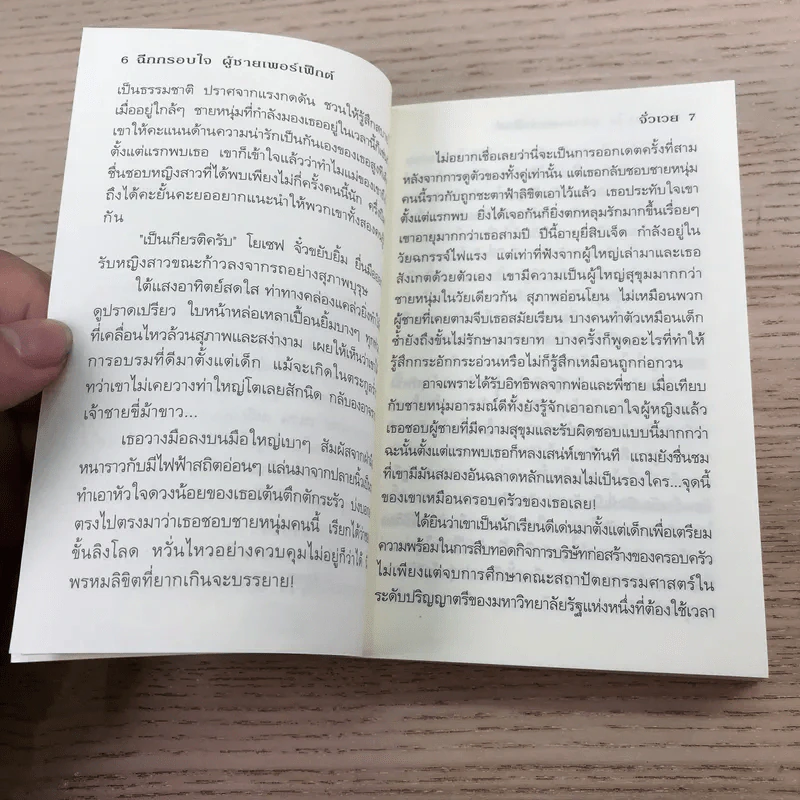 6 ฉีกกรอบใจ ผู้ชายเพอร์เฟ็กต์
เป็นธรรมชาติ ปราศจากแรงกดดัน ชวนให้รู้สึก
เมื่ออยู่ใกล้ๆ ชายหนุ่มที่กำลังมองเธออยู่ในเวลานี้ก็
เขาให้คะแนนด้านความน่ารักเป็นกันเองของเธอสูง
ตั้งแต่แรกพบเธอ เขาก็เข้าใจแล้วว่าทำไมแม่ของเขา
ชื่นชอบหญิงสาวที่ได้พบเพียงไม่กี่ครั้งคนนี้นัก
ถึงได้คะยั้นคะยออยากแนะนำให้พวกเขาทั้งสอง
กัน
"เป็นเกียรติครับ" โยเซฟ จั๋วขยับยิ้ม ยื่นมือ
รับหญิงสาวขณะก้าวลงจากรถอย่างสุภาพบุรุษ
ใต้แสงอาทิตย์สดใส ท่าทางคล่องแคล่วยิ่งทำ
ดูปราดเปรียว ใบหน้าหล่อเหลาเปื้อนยิ้มบางๆ
ที่เคลื่อนไหวล้วนสุภาพและสง่างาม เผยให้เห็นว่า
การอบรมที่ดีมาตั้งแต่เด็ก แม้จะเกิดในตระกูล
ทว่าเขาไม่เคยวางท่าใหญ่โตเลยสักนิด กลับ
เจ้าชายขี่ม้าขาว...
เธอวางมือลงบนมือใหญ่เบาๆ สัมผัสจาก
หนาราวกับมีไฟฟ้าสถิตอ่อนๆ แล่นมาจากปลายนิ้ว
ทำเอาหัวใจดวงน้อยของเธอเต้นตึกตักระรัว
ตรงไปตรงมาว่าเธอชอบชายหนุ่มคนนี้ เรียกได้ว่า
ขั้นลิงโลด หวั่นไหวอย่างควบคุมไม่อยู่ก็ว่าได้
พรหมลิขิตที่ยากเกินจะบรรยาย!
จั๋วเวย 7
ไม่อยากเชื่อเลยว่านี่จะเป็นการออกเดตครั้งที่สาม
หลังจากการดูตัวของทั้งคู่เท่านั้น แต่เธอกลับชอบชายหนุ่ม
คนนี้ราวกับถูกชะตาฟ้าลิขิตเอาไว้แล้ว เธอประทับใจเขา
ตั้งแต่แรกพบ ยิ่งได้เจอกันก็ยิ่งตกหลุมรักมากขึ้นเรื่อยๆ
เขาอายุมากกว่าเธอสามปี ปีนี้อายุยี่สิบเจ็ด กำลังอยู่ใน
วัยฉกรรจ์ไฟแรง แต่เท่าที่ฟังจากผู้ใหญ่เล่ามาและเธอ
สังเกตด้วยตัวเอง เขามีความเป็นผู้ใหญ่สุขุมมากกว่า
ชายหนุ่มในวัยเดียวกัน สุภาพอ่อนโยน ไม่เหมือนพวก
ผู้ชายที่เคยตามจีบเธอสมัยเรียน บางคนทำตัวเหมือนเด็ก
ซ้ำยังถึงขั้นไม่รักษามารยาท บางครั้งก็พูดอะไรที่ทำให้
รู้สึกกระอักกระอ่วนหรือไม่ก็รู้สึกเหมือนถูกก่อกวน
อาจเพราะได้รับอิทธิพลจากพ่อและพี่ชาย เมื่อเทียบ
กับชายหนุ่มอารมณ์ดีทั้งยังรู้จักเอาอกเอาใจผู้หญิงแล้ว
เธอชอบผู้ชายที่มีความสุขุมและรับผิดชอบแบบนี้มากกว่า
ฉะนั้นตั้งแต่แรกพบเธอก็หลงเสน่ห์เขาทันที แถมยังชื่นชม
ที่เขามีมันสมองอันฉลาดหลักแหลมไม่เป็นรองใคร...จุดนี้
ของเขาเหมือนครอบครัวของเธอเลย!
ได้ยินว่าเขาเป็นนักเรียนดีเด่นมาตั้งแต่เด็กเพื่อเตรียม
ความพร้อมในการสืบทอดกิจการบริษัทก่อสร้างของครอบครัว
ไม่เพียงแต่จบการศึกษาคณะสถาปัตยกรรมศาสตร์ใน
ระดับปริญญาตรีของมหาวิทยาลัยรัฐแห่งหนึ่งที่ต้องใช้เวลา